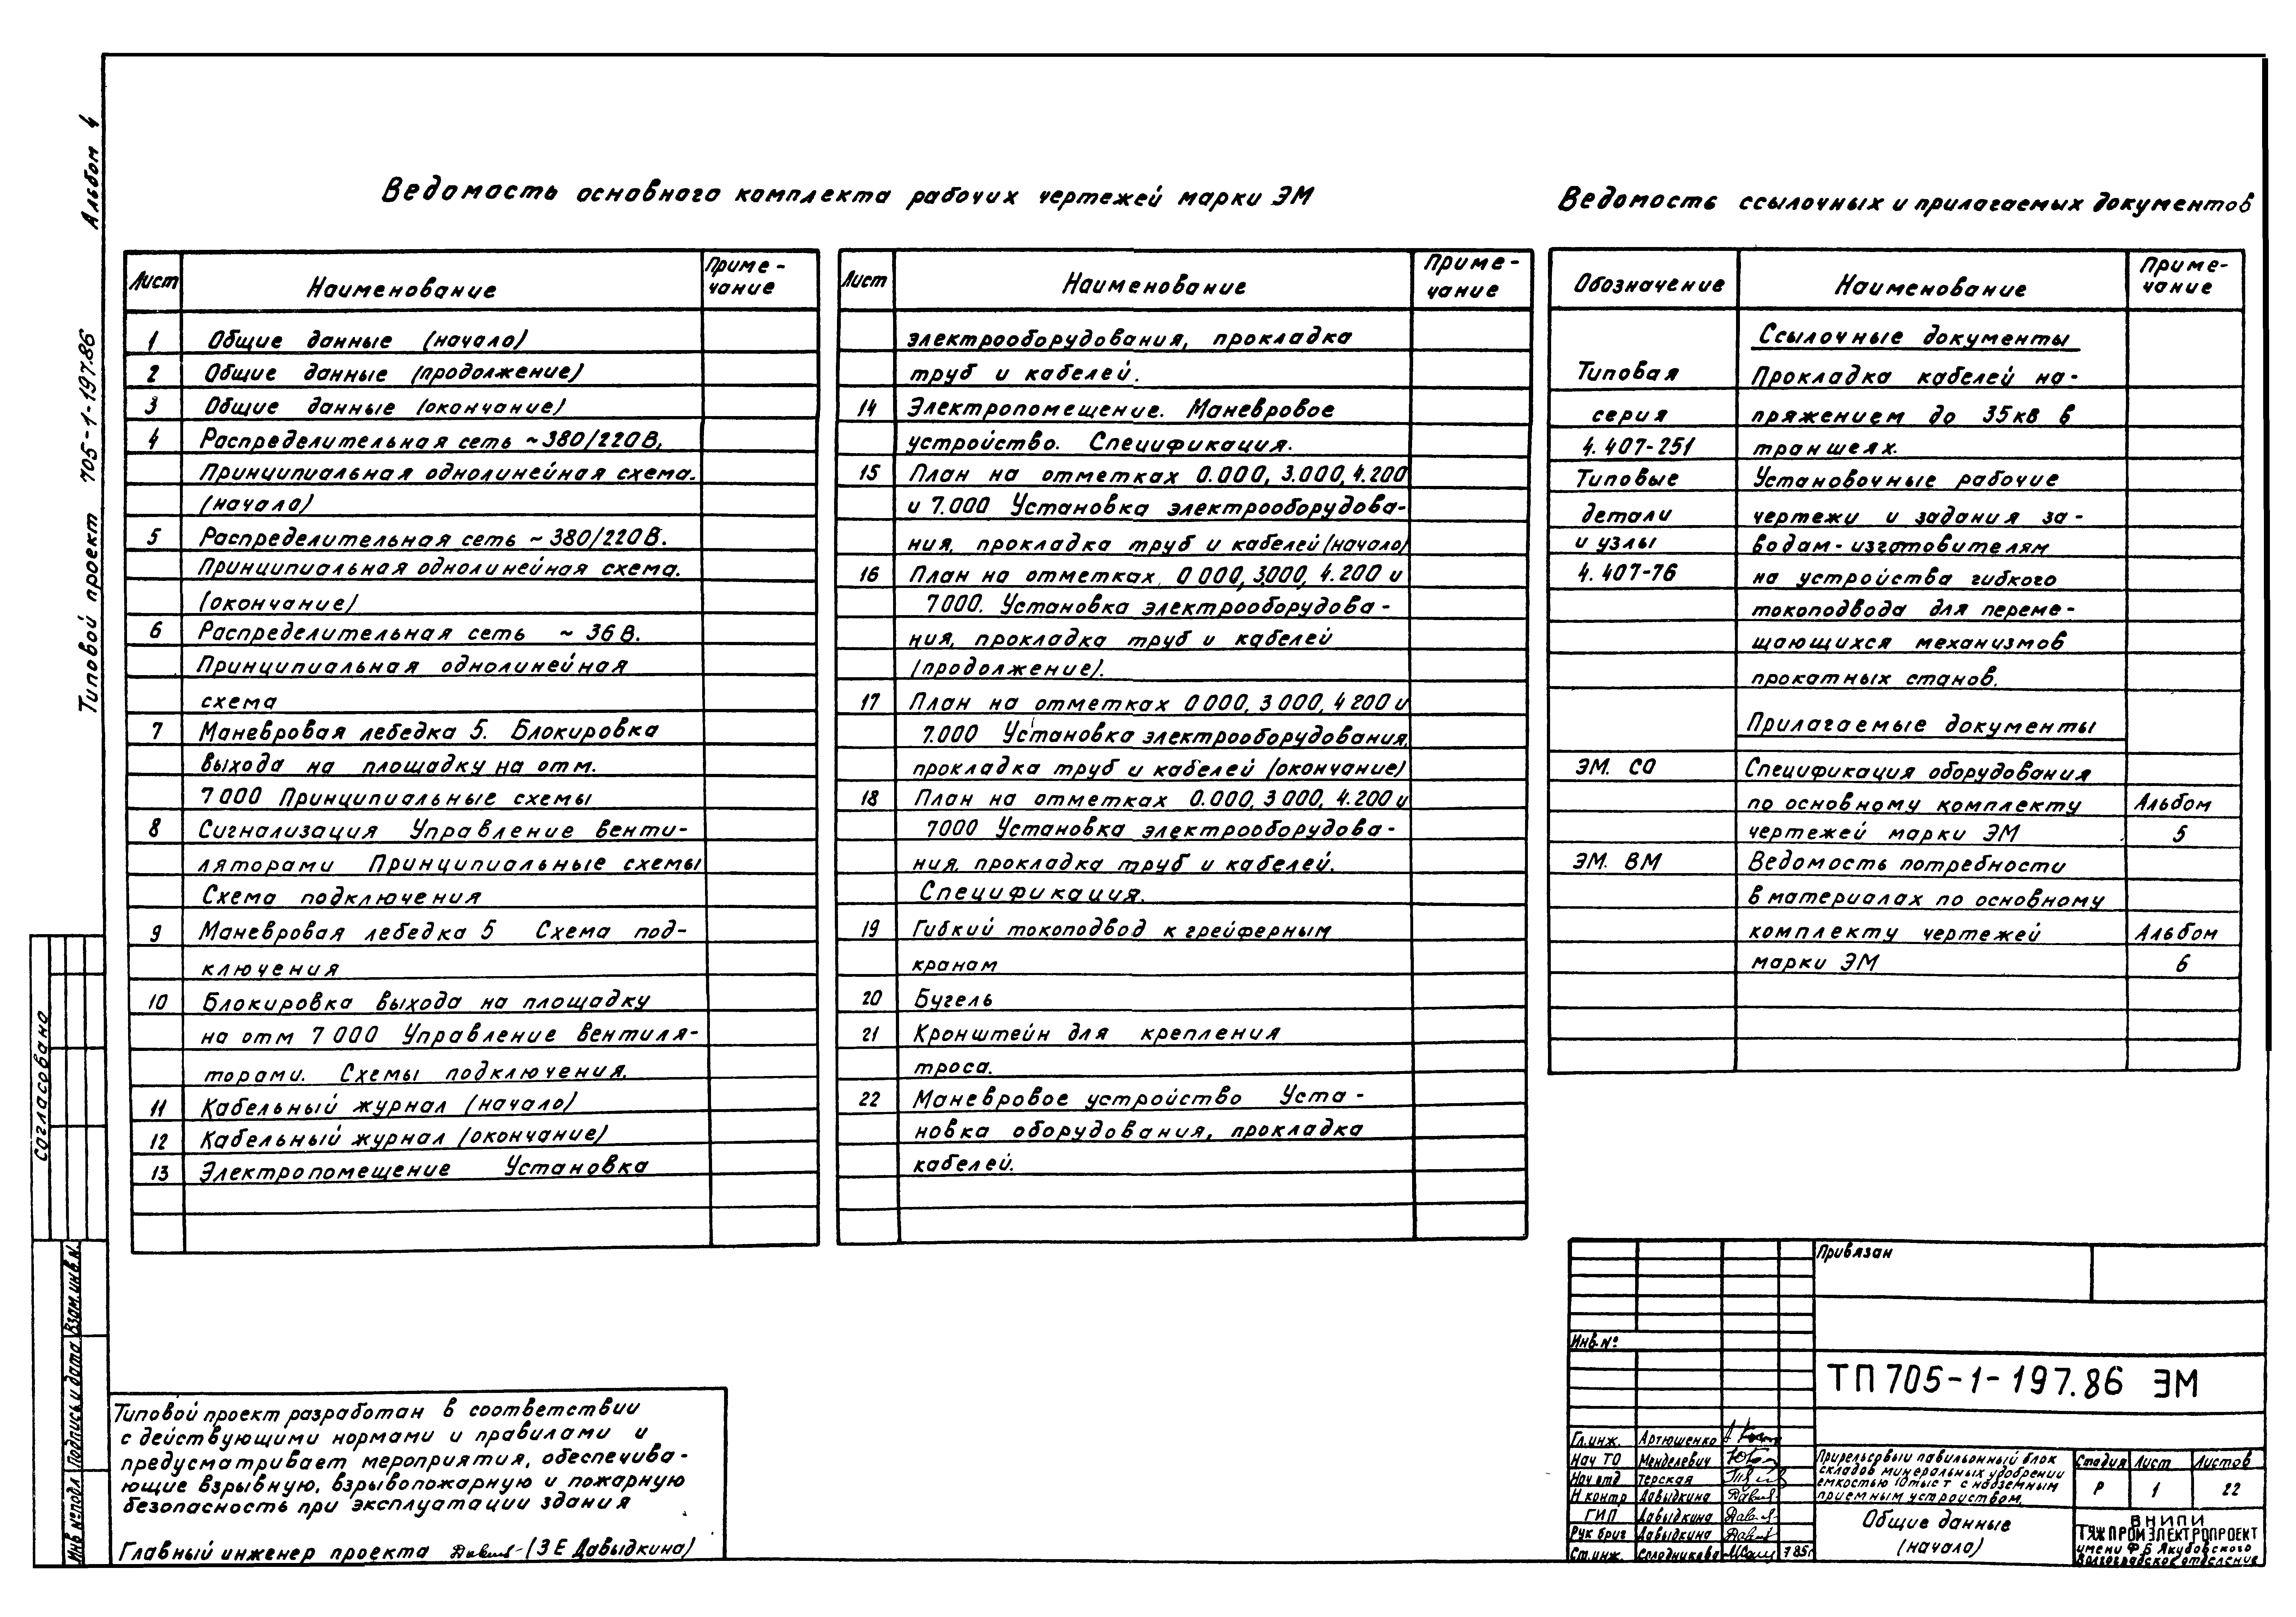 Типовой проект 705-1-197.86 Альбом 4
Ведомость основного комплекта рабочих чертежей марки ЭМ
Лист Наименование Приме-
чание
1 Общие данные (начало)
2 Общие данные (продолжение)
3 Общие данные (окончание)
4 Распределительная сеть ~380/220В.
Принципиальная однолинейная схема.
(начало)
5 Распределительная сеть ~380/220В.
Принципиальная однолинейная схема.
(окончание)
6 Распределительная сеть ~36В.
Принципиальная однолинейная
схема
7 Маневровая лебедка 5. Блокировка
выхода на площадку на отм.
7 000 Принципиальные схемы
8 Сигнализация Управление венти-
ляторами Принципиальные схемы
Схема подключения
9 Маневровая лебедка 5 Схема под-
ключения
10 Блокировка выхода на площадку
на отм 7 000 Управление вентиля-
торами. Схемы подключения.
11 Кабельный журнал (начало)
12 Кабельный журнал (окончание)
13 Электропомещение Установка
Лист Наименование Приме-
чание
электрооборудования, прокладка
труб и кабелей.
14 Электропомещение. Маневровое
устройство. Спецификация.
15 План на отметках 0.000, 3.000, 4.200
и 7.000 Установка электрооборудова-
ния, прокладка труб и кабелей (начало)
16 План на отметках 0 000, 3,000, 4.200 и
7000. Установка электрооборудова-
ния, прокладка труб и кабелей
(продолжение).
17 План на отметках 0 000, 3 000, 4 200 и
7.000 Установка электрооборудования,
прокладка труб и кабелей (окончание)
18 План на отметках 0.000, 3 000, 4.200 и
7000 Установка электрооборудова-
ния, прокладка труб и кабелей.
Спецификация.
19 Гибкий токоподвод к грейферным
кранам
20 Бугель
21 Кронштейн для крепления
троса.
22 Маневровое устройство Уста-
новка оборудования, прокладка
кабелей.
Ведомость ссылочных и прилагаемых документов
Обозначение Наименование Приме-
чание
Ссылочные документы
Типовая Прокладка кабелей на-
серия пряжением до 35кв в
4.407-251 траншеях.
Типовые Установочные рабочие
детали чертежи и задания за-
и узлы водам-изготовителям
4.407-76 на устройства гибкого
токоподвода для переме-
щающихся механизмов
прокатных станов.
Прилагаемые документы
ЭМ. СО Спецификация оборудования
по основному комплекту Альбом
чертежей марки ЭМ 5
ЭМ. ВМ Ведомость потребности
в материалах по основному
комплекту чертежей Альбом
марки ЭМ 6
Согласовано
Взам.инв.N
Подпись и дата
Инв №подл
Типовой проект разработан в соответствии
с действующими нормами и правилами и
предусматривает мероприятия, обеспечива-
ющие взрывную, взрывопожарную и пожарную
безопасность при эксплуатации здания
Главный инженер проекта (З Е Давыдкина)
Привязан
Инв.№
ТП 705-1-197.86 ЭМ
Гл.инж. Артюшенко
Нач ТО Менделевич
Нач отд Терская
Н контр Давыдкина
ГИП Давыдкина
Рук бриг Давыдкина
Ст.инж. Солодникова 7 85г
Прирельсовый павильонный блок
складов минеральных удобрений
емкостью 10тыс т с надземным
приемным устройством.
Стадия Лист Листов
Р 1 22
Общие данные
(начало)
ВНИПИ
ТЯЖПРОМЭЛЕКТРОПРОЕКТ
имени Ф Б Якубовского
Волгоградское отделение